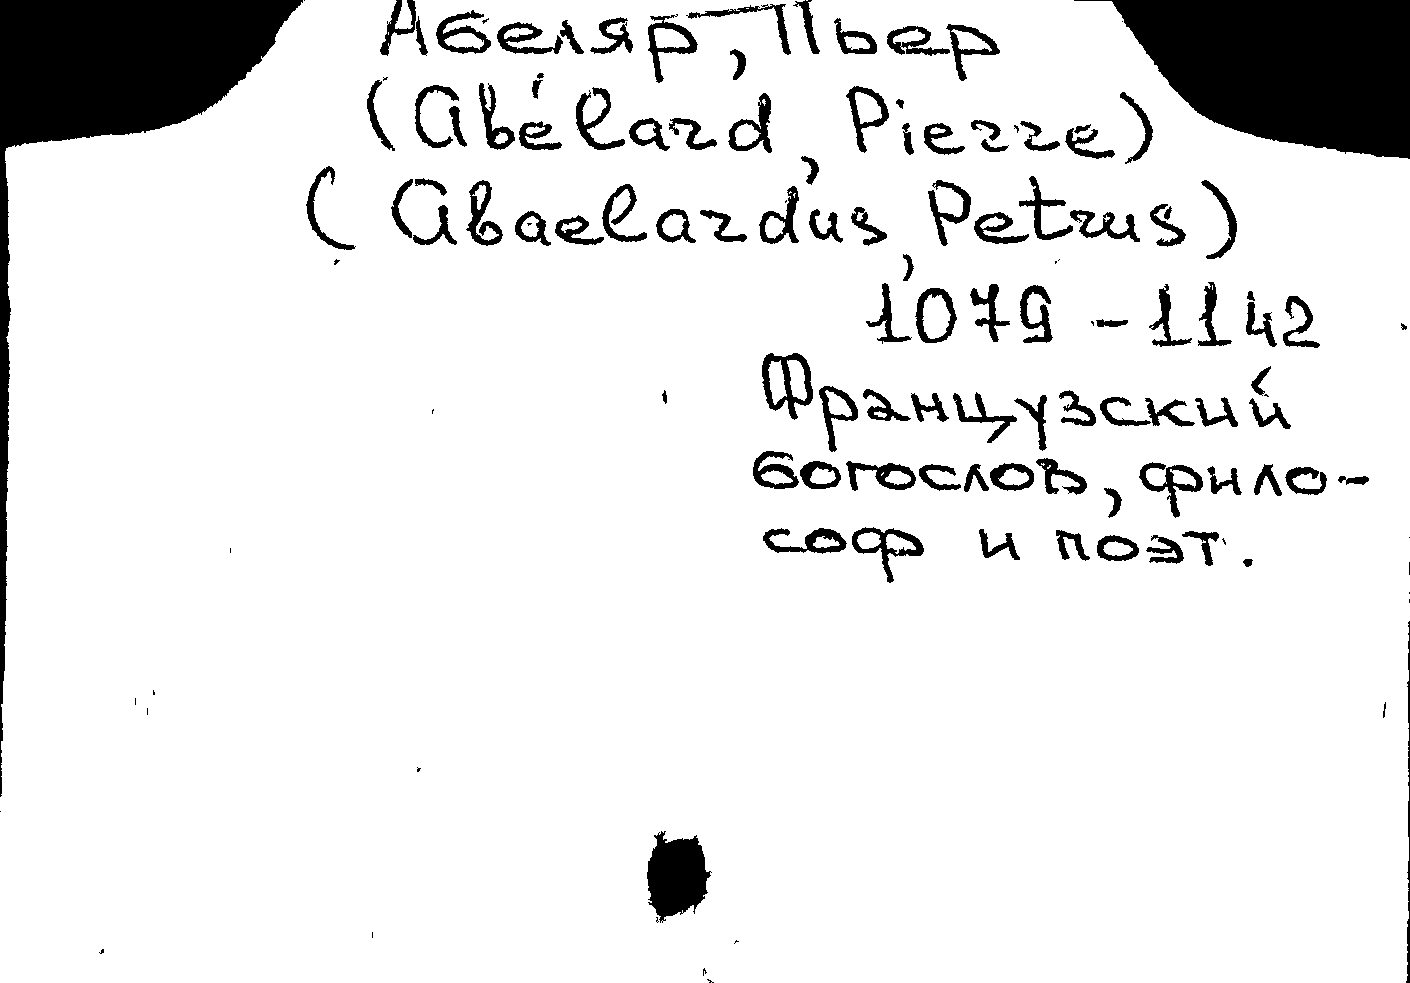 Абеляр, Пьер
(Abélard, Pierre)
(Abaelardus, Petrus)
1079 - 1142
Французский
богослов, фило-
соф и поэт.